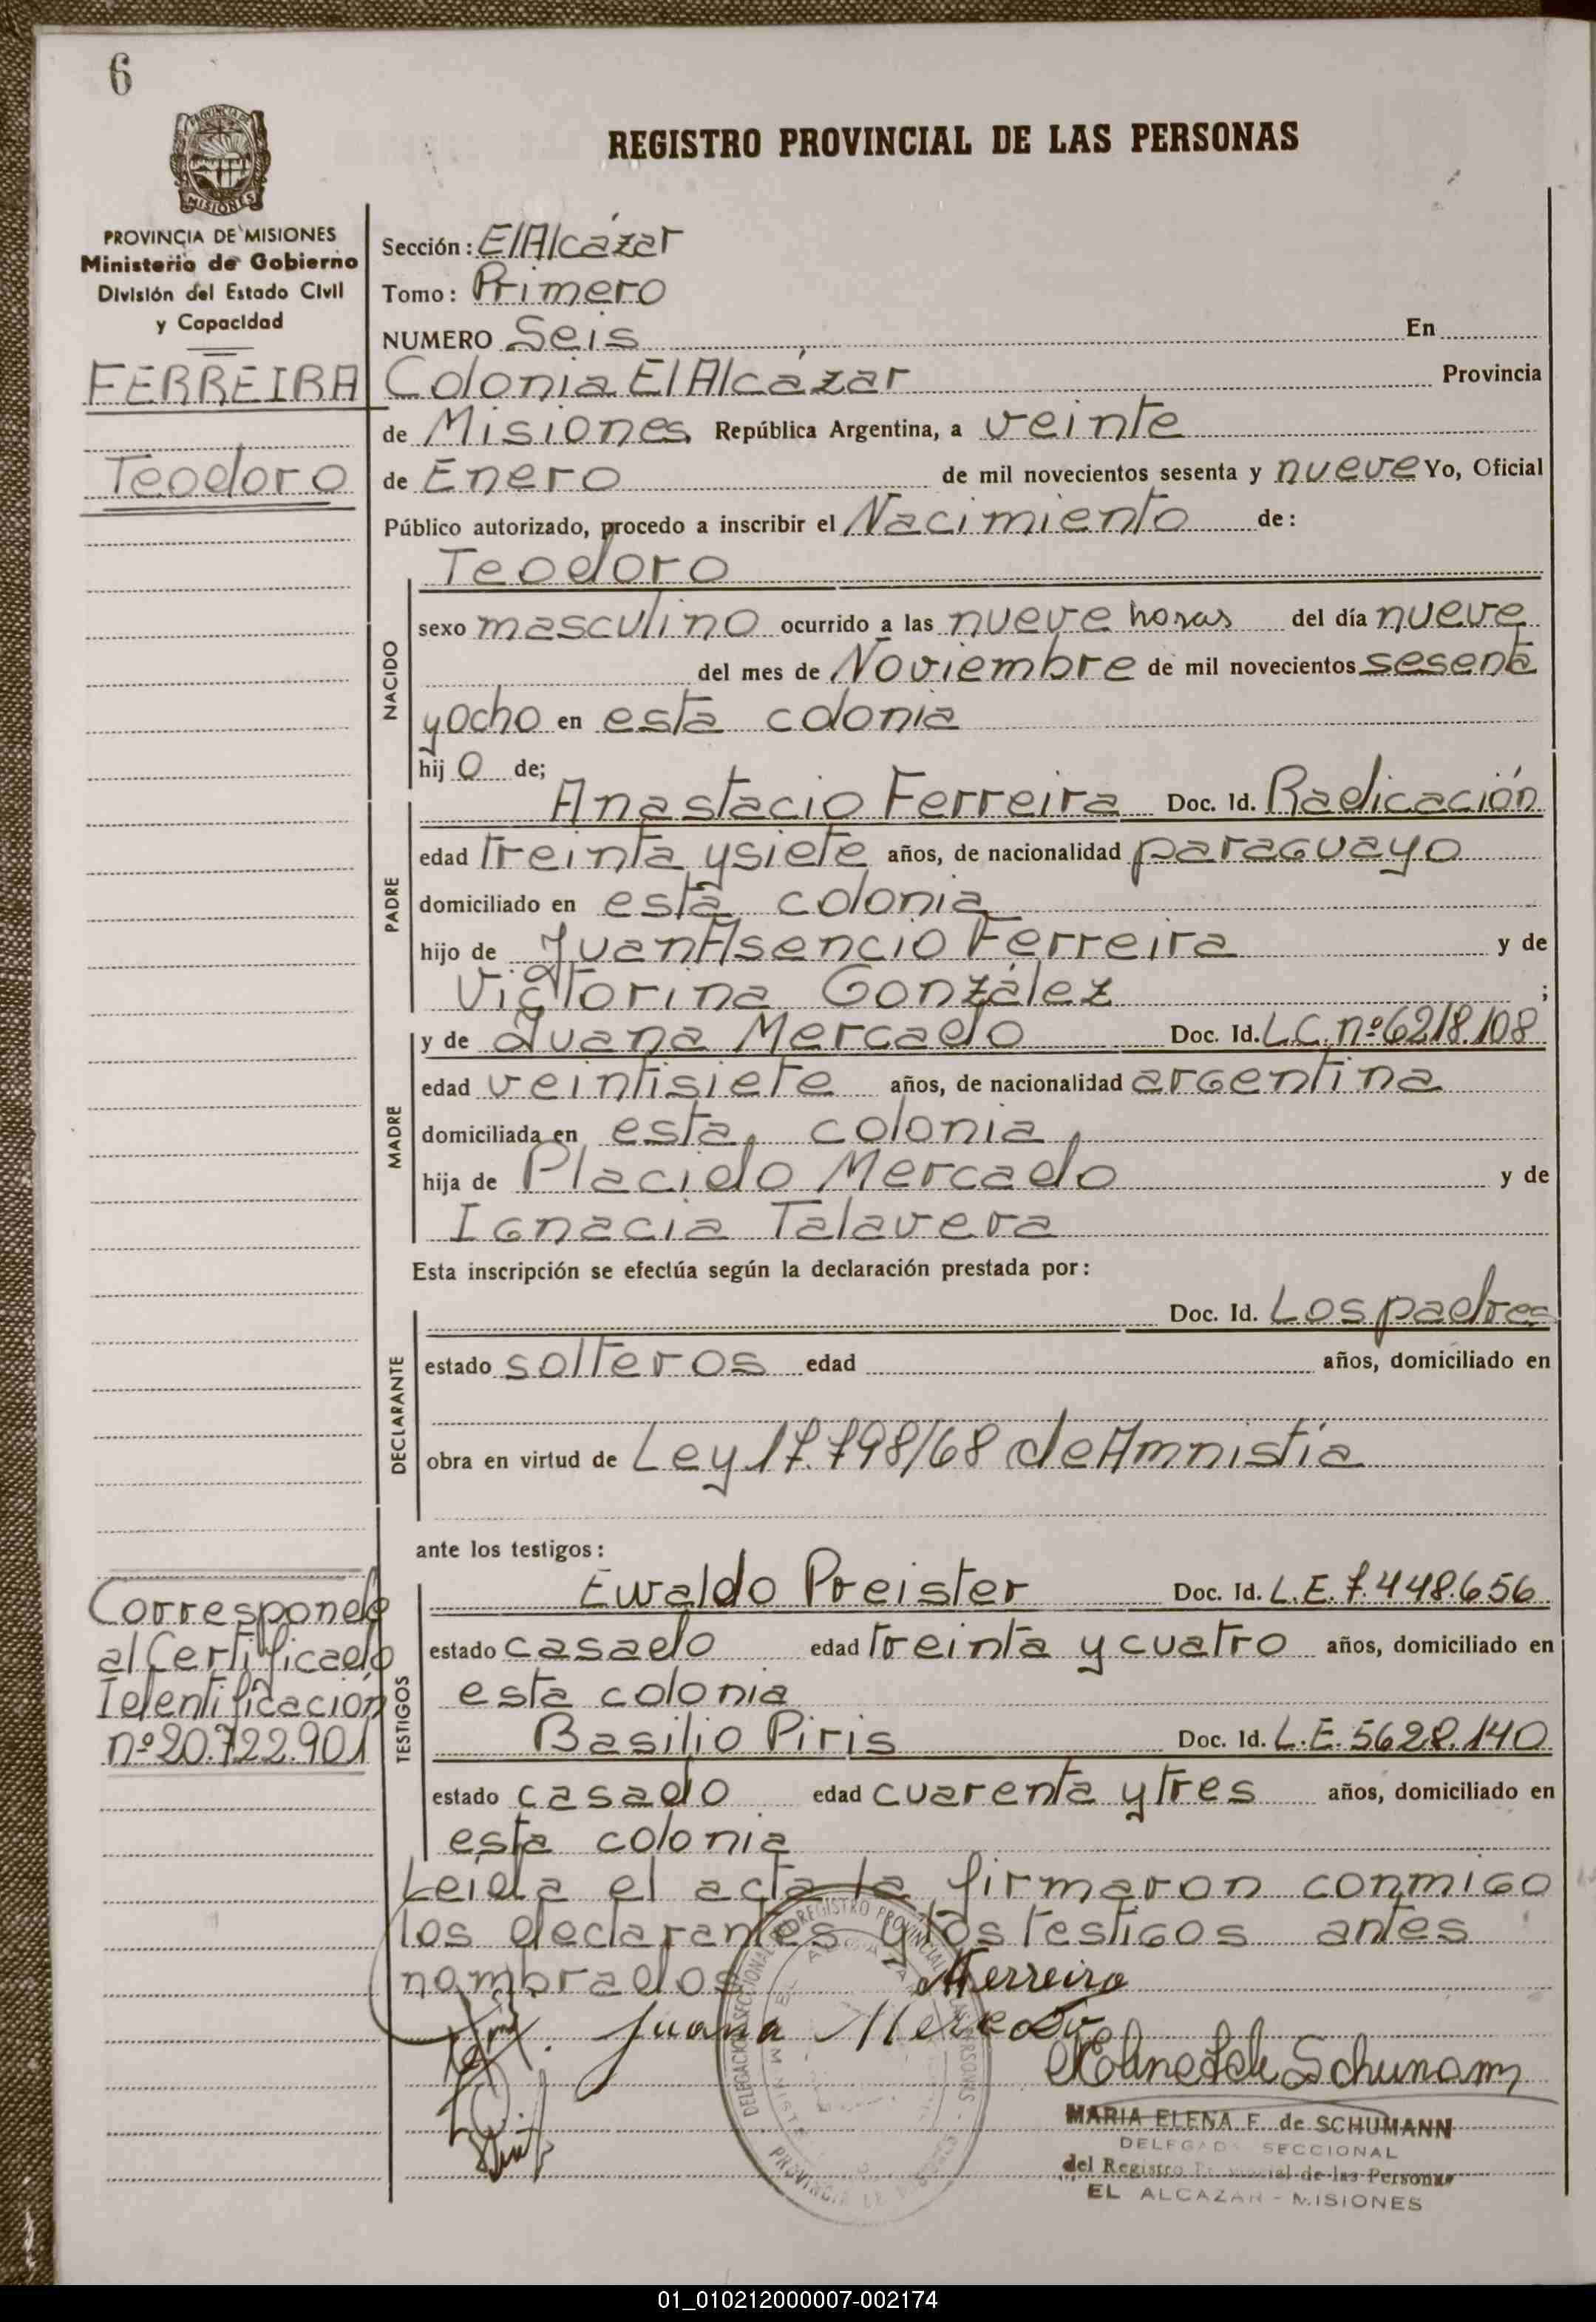 6
REGISTRO PROVINCIAL DE LAS PERSONAS
MISIONES
PROVINCIA DE MISIONES
Ministerio de Gobierno
División del Estado Civil
y Capacidad
FERREIRA
Teodoro
Sección: El Alcázar
Tomo: Primero
NUMERO Seis En
Colonia El Alcázar Provincia
de Misiones República Argentina, a veinte
de Enero de mil novecientos sesenta y nueve Yo, Oficial
Público autorizado, procedo a inscribir el Nacimiento de:
Teodoro
NACIDO
sexo masculino ocurrido a las nueve horas del día nueve
del mes de Noviembre de mil novecientos sesenta
y ocho en esta colonia
hij o de;
PADRE
Anastacio Ferreira Doc. Id. Radicación
edad treinta y siete años, de nacionalidad paraguayo
domiciliado en esta colonia
hijo de Juan Asencio Ferreira y de
Victorina González ;
MADRE
y de Juana Mercado Doc. Id. L.C. nº 6218.108
edad veintisiete años, de nacionalidad argentina
domiciliada en esta colonia
hija de Placido Mercado y de
Ignacia Talavera
Esta inscripción se efectúa según la declaración prestada por:
DECLARANTE
Doc. Id. Los padres
estado solteros edad años, domiciliado en
obra en virtud de Ley 17.798/68 de Amnistía
ante los testigos:
TESTIGOS
Ewaldo Preister Doc. Id. L.E. 7.448.656
estado casado edad treinta y cuatro años, domiciliado en
esta colonia
Basilio Piris Doc. Id. L.E. 5628.140
estado casado edad cuarenta y tres años, domiciliado en
esta colonia
Corresponde
al Certificado
Identificación
nº 20.722.901
Leída el acta la firmaron conmigo
los declarantes y los testigos antes
nombrados
Juana Mercado
MARIA ELENA F. de SCHUMANN
DELEGADA SECCIONAL
del Registro Provincial de las Personas
EL ALCAZAR - MISIONES
01_010212000007-002174